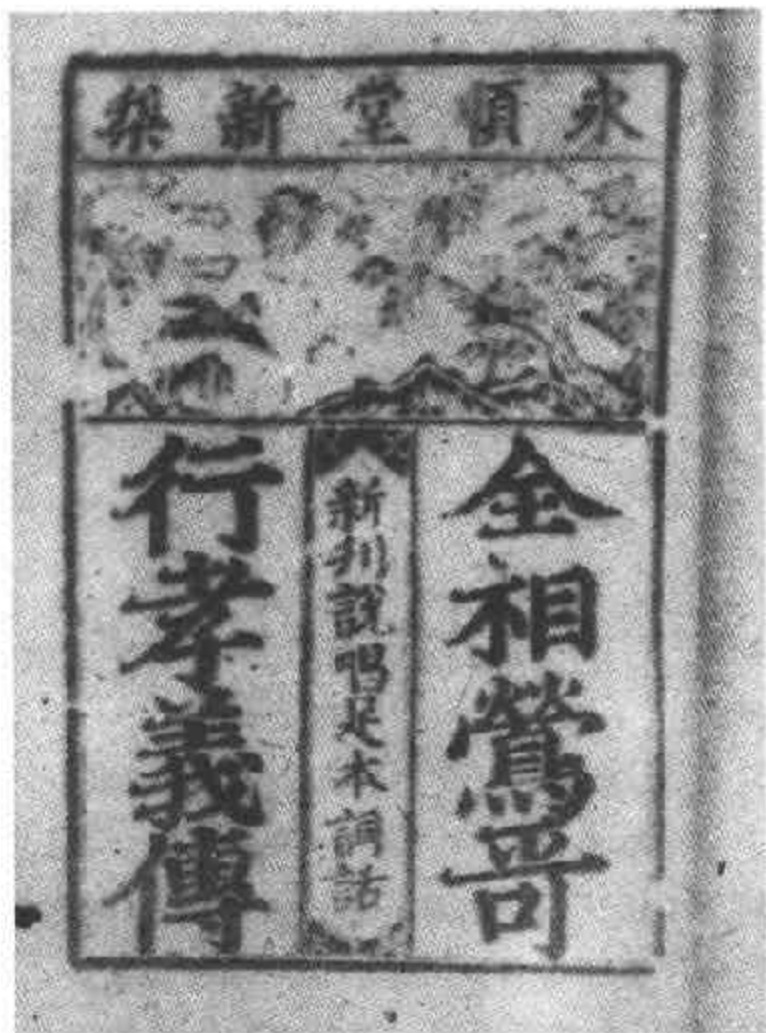 永順堂新
全相鶯哥
新刊說唱足本詞話
行孝義傳